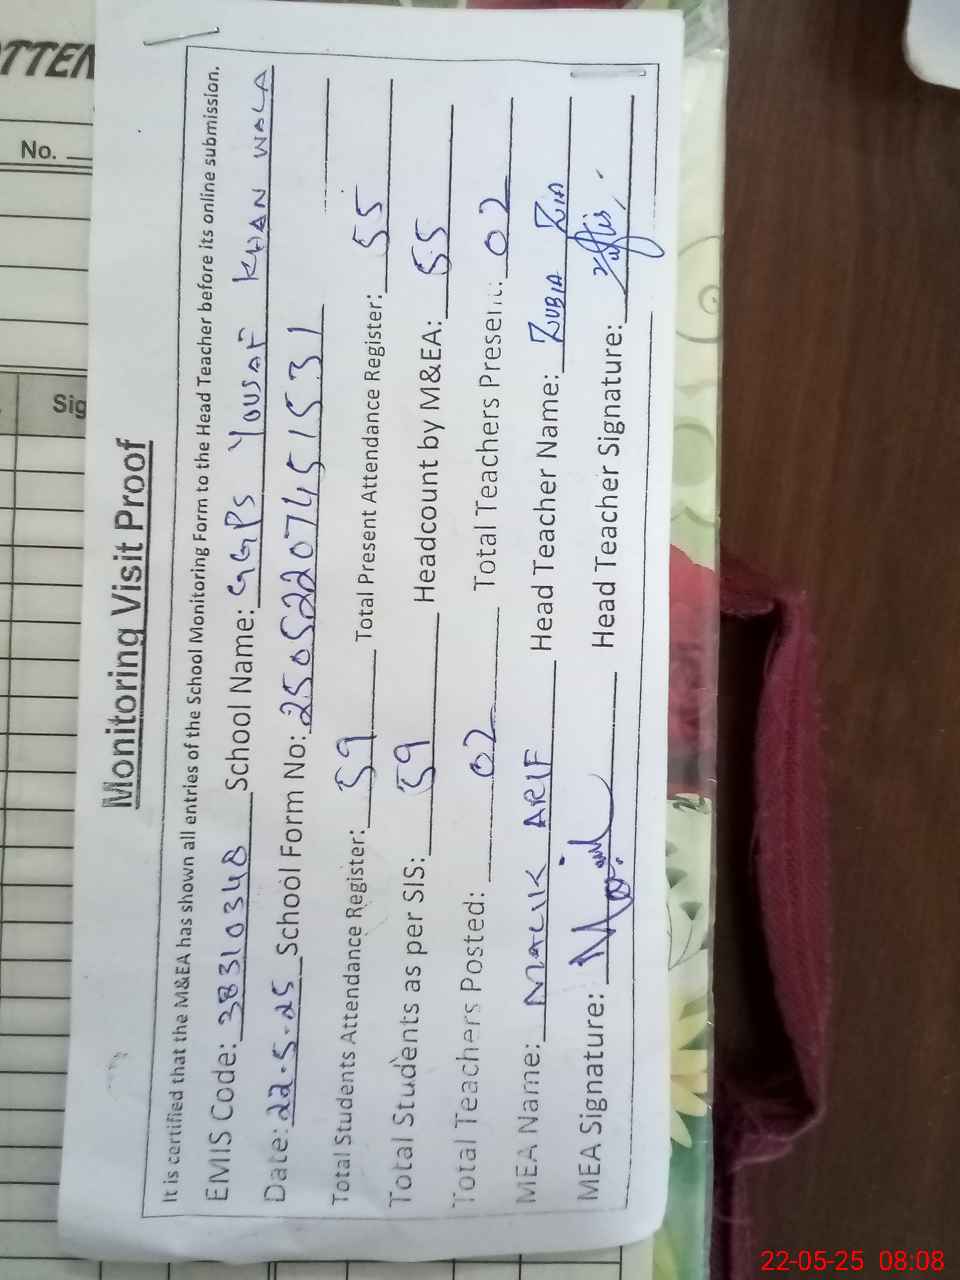 TTEN
No.
Sig
Monitoring Visit Proof
It is certified that the M&EA has shown all entries of the School Monitoring Form to the Head Teacher before its online submission.
EMIS Code: 38310348 School Name: GGPS YOUSAF KHAN WALA
Date: 22.5.25 School Form No: 25052207451531
Total Students Attendance Register: 59 Total Present Attendance Register: 55
Total Students as per SIS: 59 Headcount by M&EA: 55
Total Teachers Posted: 02 Total Teachers Present: 02
MEA Name: MALIK ARIF Head Teacher Name: ZUBIA ZIA
MEA Signature: Head Teacher Signature:
22-05-25 08:08